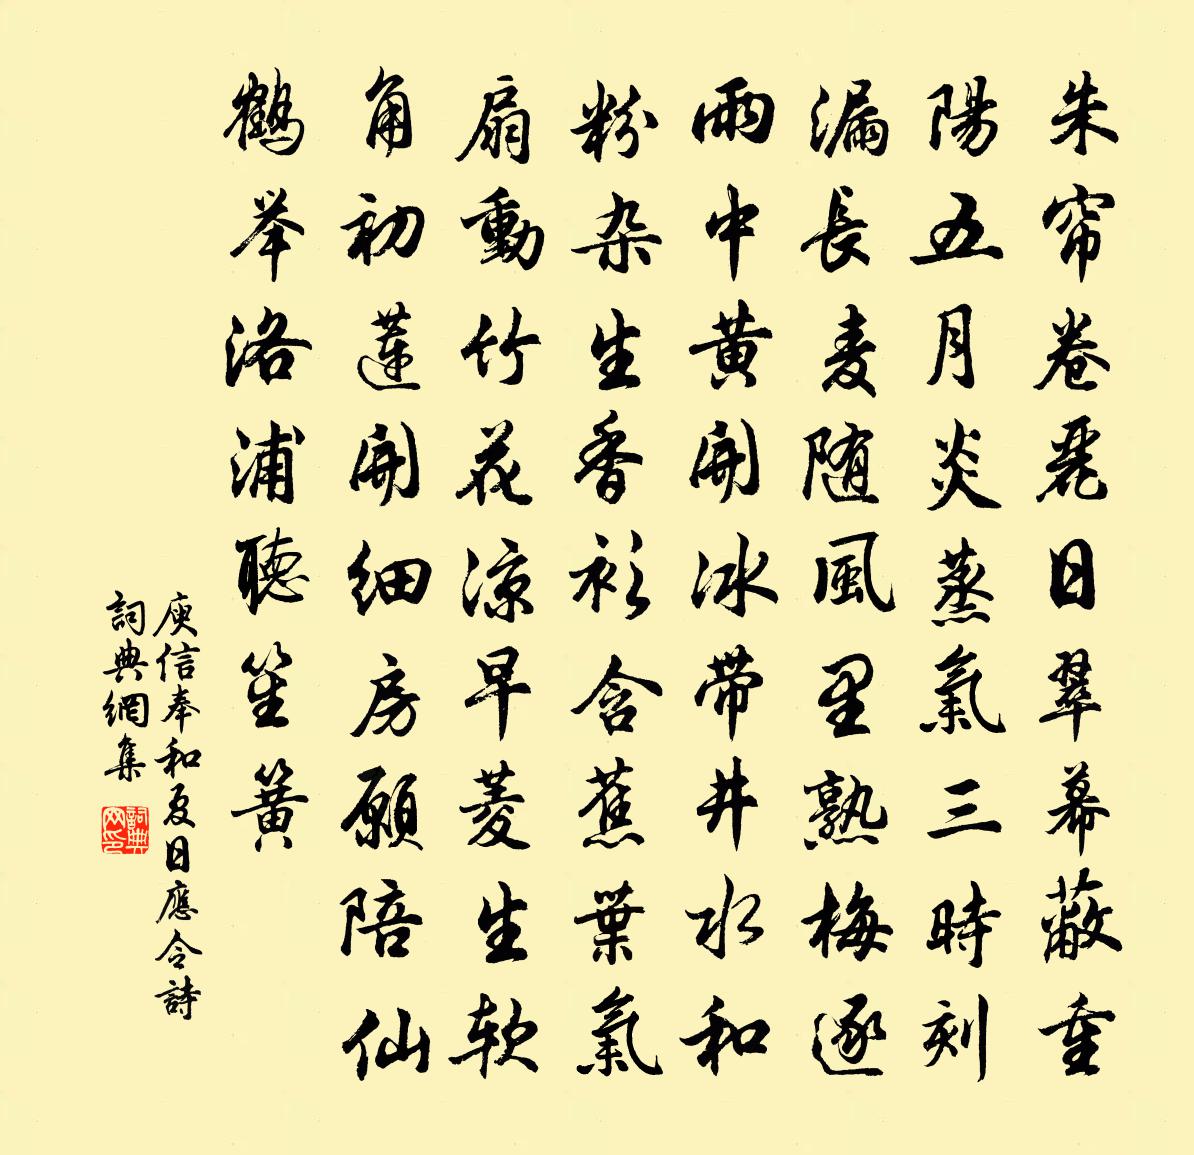 朱帘卷麗日翠幕蔽重
陽五月炎蒸氣三時刻
漏長麦随風里熟梅逐
雨中黄開冰带井水和
粉杂生香衫含蕉葉氣
扇動竹花涼早菱生软
角初蓮開细房願陪仙
鶴举洛浦聽笙簧
庾信奉和夏日應令詩
詞典網集
詞典网印